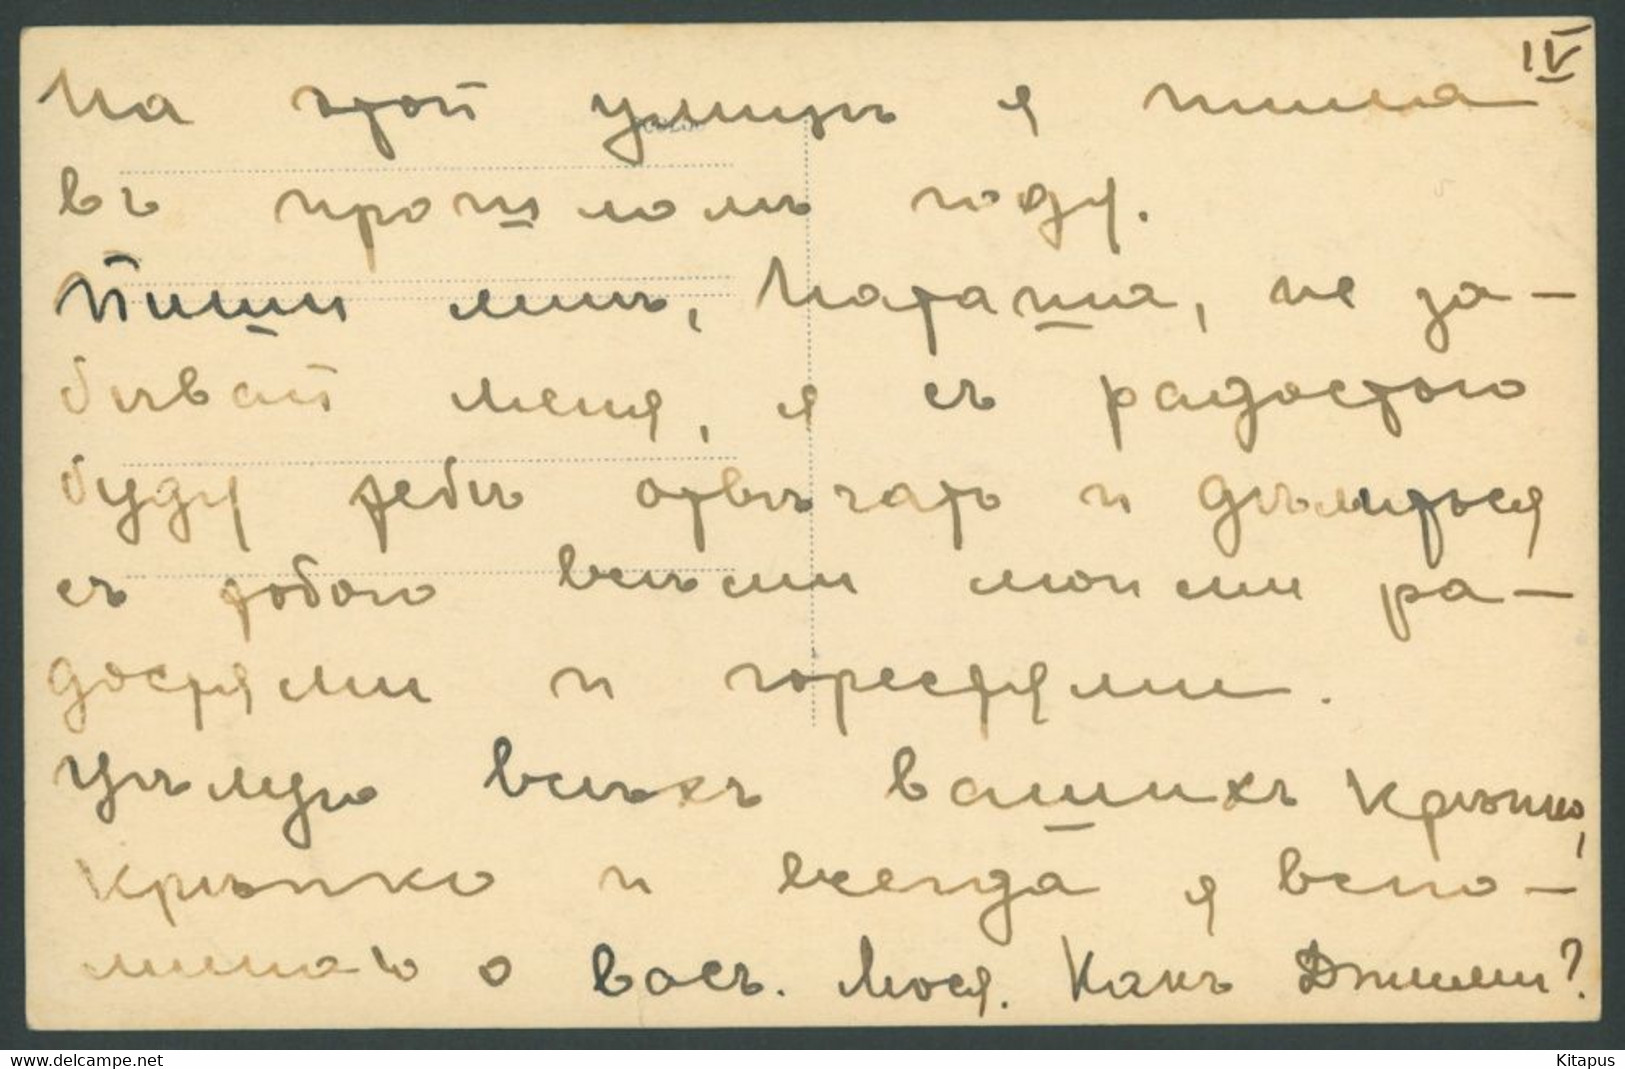 IV
На этой улицѣ я жила
въ прошломъ году.
Пиши мнѣ, Наташа, не за-
бывай меня, я съ радостью
буду тебѣ отвѣчать и дѣлиться
съ тобою всѣми моими ра-
достями и горестями.
Цѣлую всѣхъ вашихъ крѣпко,
крѣпко и всегда я вспо-
минаю о васъ. Люся. Какъ Джимми?
www.delcampe.net
Kitapus